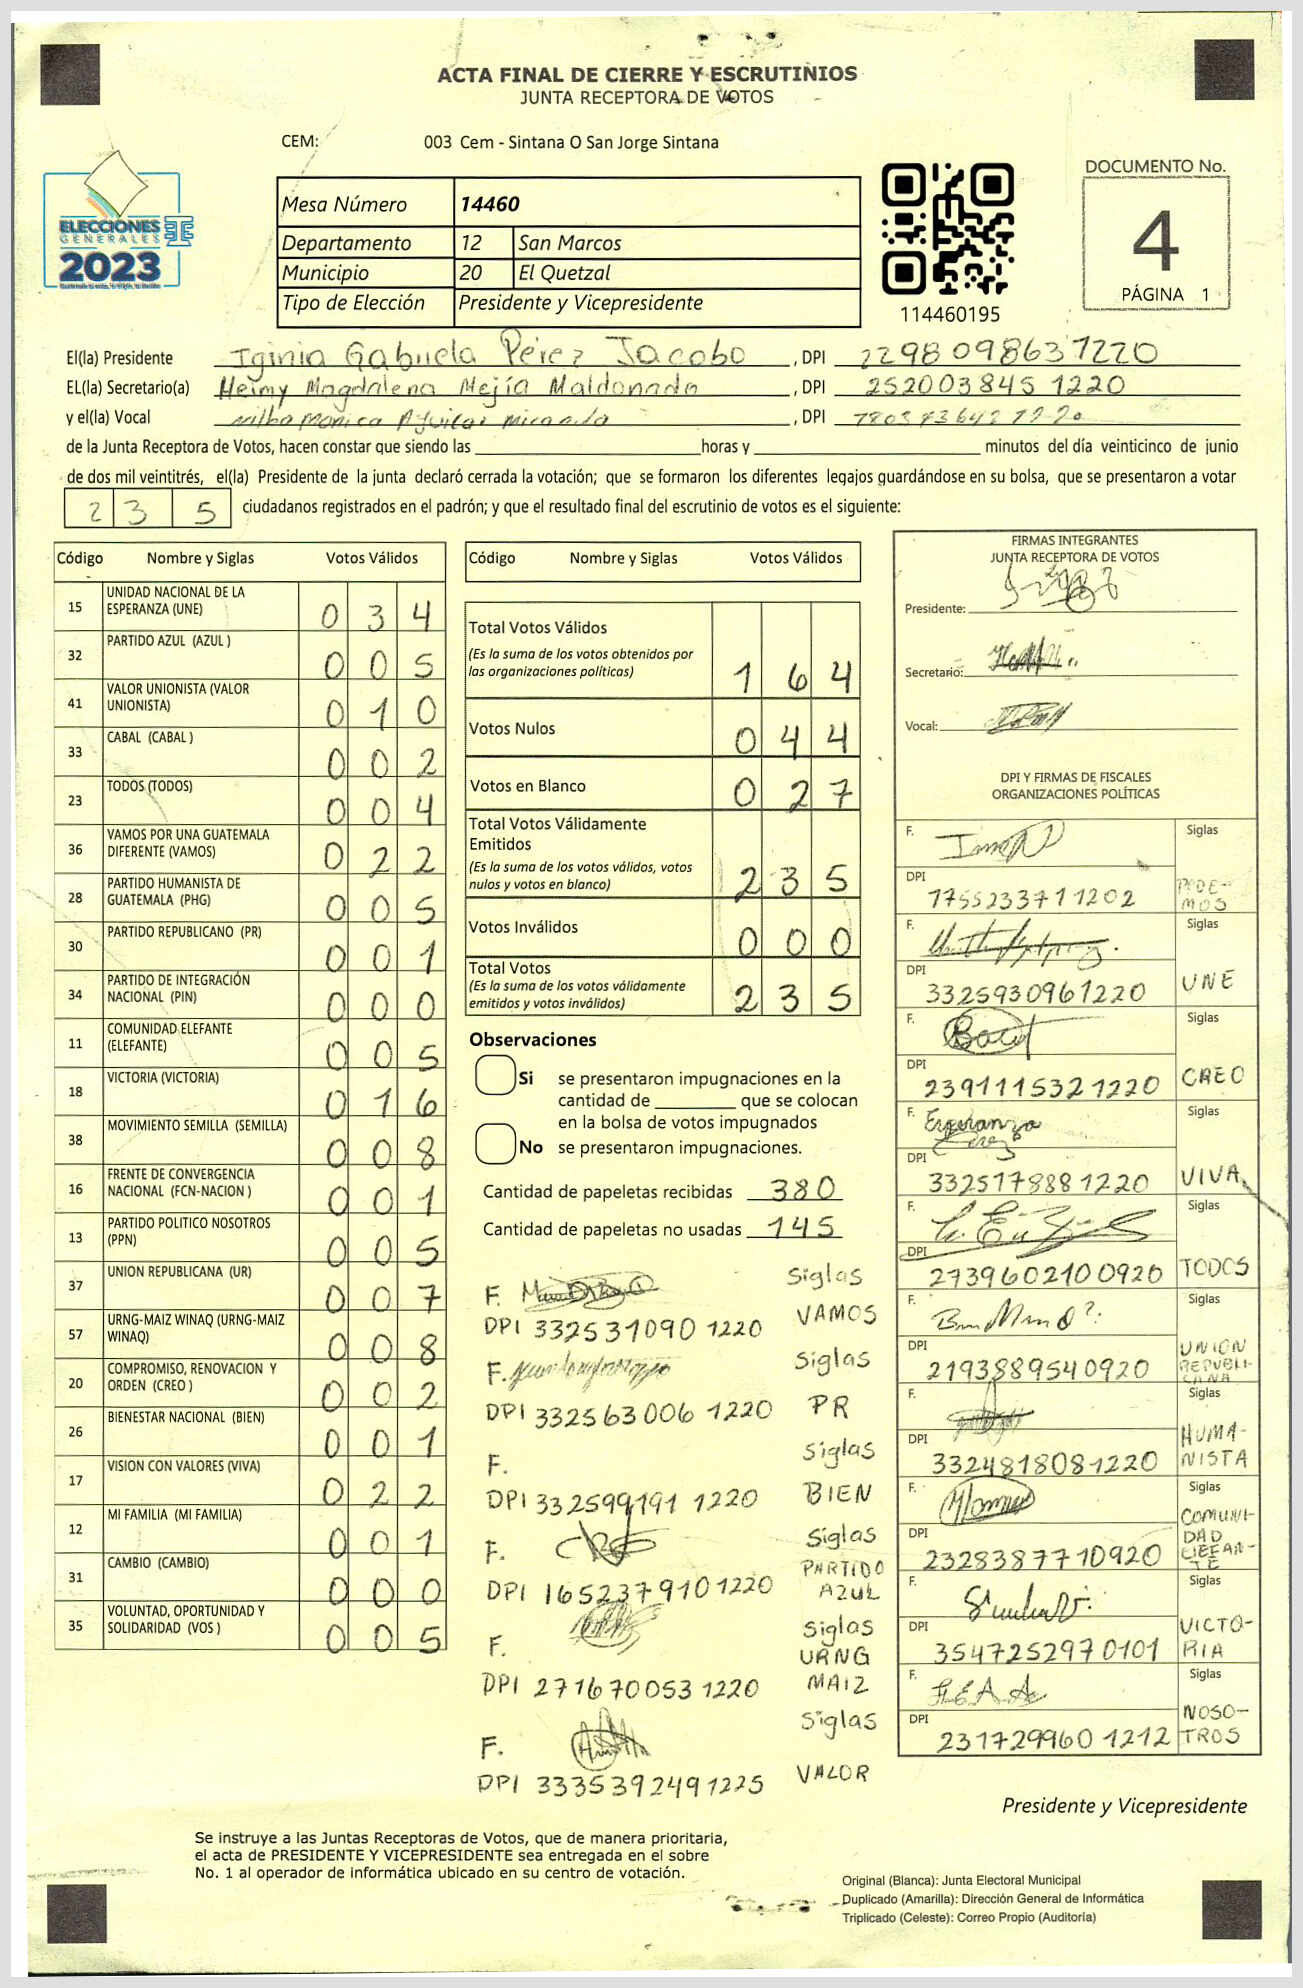 ACTA FINAL DE CIERRE Y ESCRUTINIOS
JUNTA RECEPTORA DE VOTOS
CEM: 003 Cem - Sintana O San Jorge Sintana
ELECCIONES
GENERALES
2023
Mesa Número 14460
Departamento 12 San Marcos
Municipio 20 El Quetzal
Tipo de Elección Presidente y Vicepresidente
114460195
DOCUMENTO No.
4
PÁGINA 1
El(la) Presidente Iginia Gabriela Pérez Jacobo, DPI 2298098631220
EL(la) Secretario(a) Heimy Magdalena Mejía Maldonado, DPI 2520038451220
y el(la) Vocal Monica Aguilar Miranda, DPI
de la Junta Receptora de Votos, hacen constar que siendo las horas y minutos del día veinticinco de junio
de dos mil veintitrés, el(la) Presidente de la junta declaró cerrada la votación; que se formaron los diferentes legajos guardándose en su bolsa, que se presentaron a votar
235 ciudadanos registrados en el padrón; y que el resultado final del escrutinio de votos es el siguiente:
Código Nombre y Siglas Votos Válidos
15 UNIDAD NACIONAL DE LA ESPERANZA (UNE) 034
32 PARTIDO AZUL (AZUL ) 005
41 VALOR UNIONISTA (VALOR UNIONISTA) 010
33 CABAL (CABAL ) 002
23 TODOS (TODOS) 004
36 VAMOS POR UNA GUATEMALA DIFERENTE (VAMOS) 022
28 PARTIDO HUMANISTA DE GUATEMALA (PHG) 005
30 PARTIDO REPUBLICANO (PR) 001
34 PARTIDO DE INTEGRACIÓN NACIONAL (PIN) 000
11 COMUNIDAD ELEFANTE (ELEFANTE) 005
18 VICTORIA (VICTORIA) 016
38 MOVIMIENTO SEMILLA (SEMILLA) 008
16 FRENTE DE CONVERGENCIA NACIONAL (FCN-NACION ) 001
13 PARTIDO POLITICO NOSOTROS (PPN) 005
37 UNION REPUBLICANA (UR) 007
57 URNG-MAIZ WINAQ (URNG-MAIZ WINAQ) 008
20 COMPROMISO, RENOVACION Y ORDEN (CREO ) 002
26 BIENESTAR NACIONAL (BIEN) 001
17 VISION CON VALORES (VIVA) 022
12 MI FAMILIA (MI FAMILIA) 001
31 CAMBIO (CAMBIO) 000
35 VOLUNTAD, OPORTUNIDAD Y SOLIDARIDAD (VOS ) 005
Código Nombre y Siglas Votos Válidos
Total Votos Válidos
(Es la suma de los votos obtenidos por
las organizaciones políticas) 164
Votos Nulos 044
Votos en Blanco 027
Total Votos Válidamente
Emitidos
(Es la suma de los votos válidos, votos
nulos y votos en blanco) 235
Votos Inválidos 000
Total Votos
(Es la suma de los votos válidamente
emitidos y votos inválidos) 235
Observaciones
Si se presentaron impugnaciones en la
cantidad de que se colocan
en la bolsa de votos impugnados
No se presentaron impugnaciones.
Cantidad de papeletas recibidas 380
Cantidad de papeletas no usadas 145
F. Siglas
DPI 3325310901220 VAMOS
F. Siglas
DPI 3325630061220 PR
F. Siglas
DPI 3325991911220 BIEN
F. Siglas
DPI 1652379101220 PARTIDO AZUL
F. Siglas
DPI 2716700531220 URNG MAIZ
F. Siglas
DPI 3335392491225 VALOR
FIRMAS INTEGRANTES
JUNTA RECEPTORA DE VOTOS
Presidente:
Secretario:
Vocal:
DPI Y FIRMAS DE FISCALES
ORGANIZACIONES POLÍTICAS
F. Siglas
DPI 1755233711202 PODE-MOS
F. Siglas
DPI 3325930961220 UNE
F. Siglas
DPI 2391115321220 CREO
F. Esperanza Siglas
DPI 3325178881220 VIVA
F. Siglas
DPI 2739602100920 TODOS
F. Siglas
DPI 2193889540920 UNION REPUBLI-CANA
F. Siglas
DPI 3324818081220 HUMA-NISTA
F. Siglas
DPI 2328387710920 COMUNI-DAD ELEFAN-TE
F. Siglas
DPI 3547252970101 VICTO-RIA
F. Siglas
DPI 2317299601212 NOSO-TROS
Presidente y Vicepresidente
Se instruye a las Juntas Receptoras de Votos, que de manera prioritaria,
el acta de PRESIDENTE Y VICEPRESIDENTE sea entregada en el sobre
No. 1 al operador de informática ubicado en su centro de votación.
Original (Blanca): Junta Electoral Municipal
Duplicado (Amarilla): Dirección General de Informática
Triplicado (Celeste): Correo Propio (Auditoría)